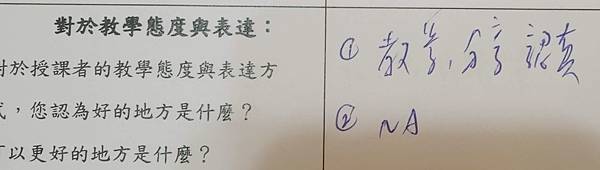 對於教學態度與表達：
對於授課者的教學態度與表達方
式，您認為好的地方是什麼？
可以更好的地方是什麼？
① 教學，分享認真
② NA